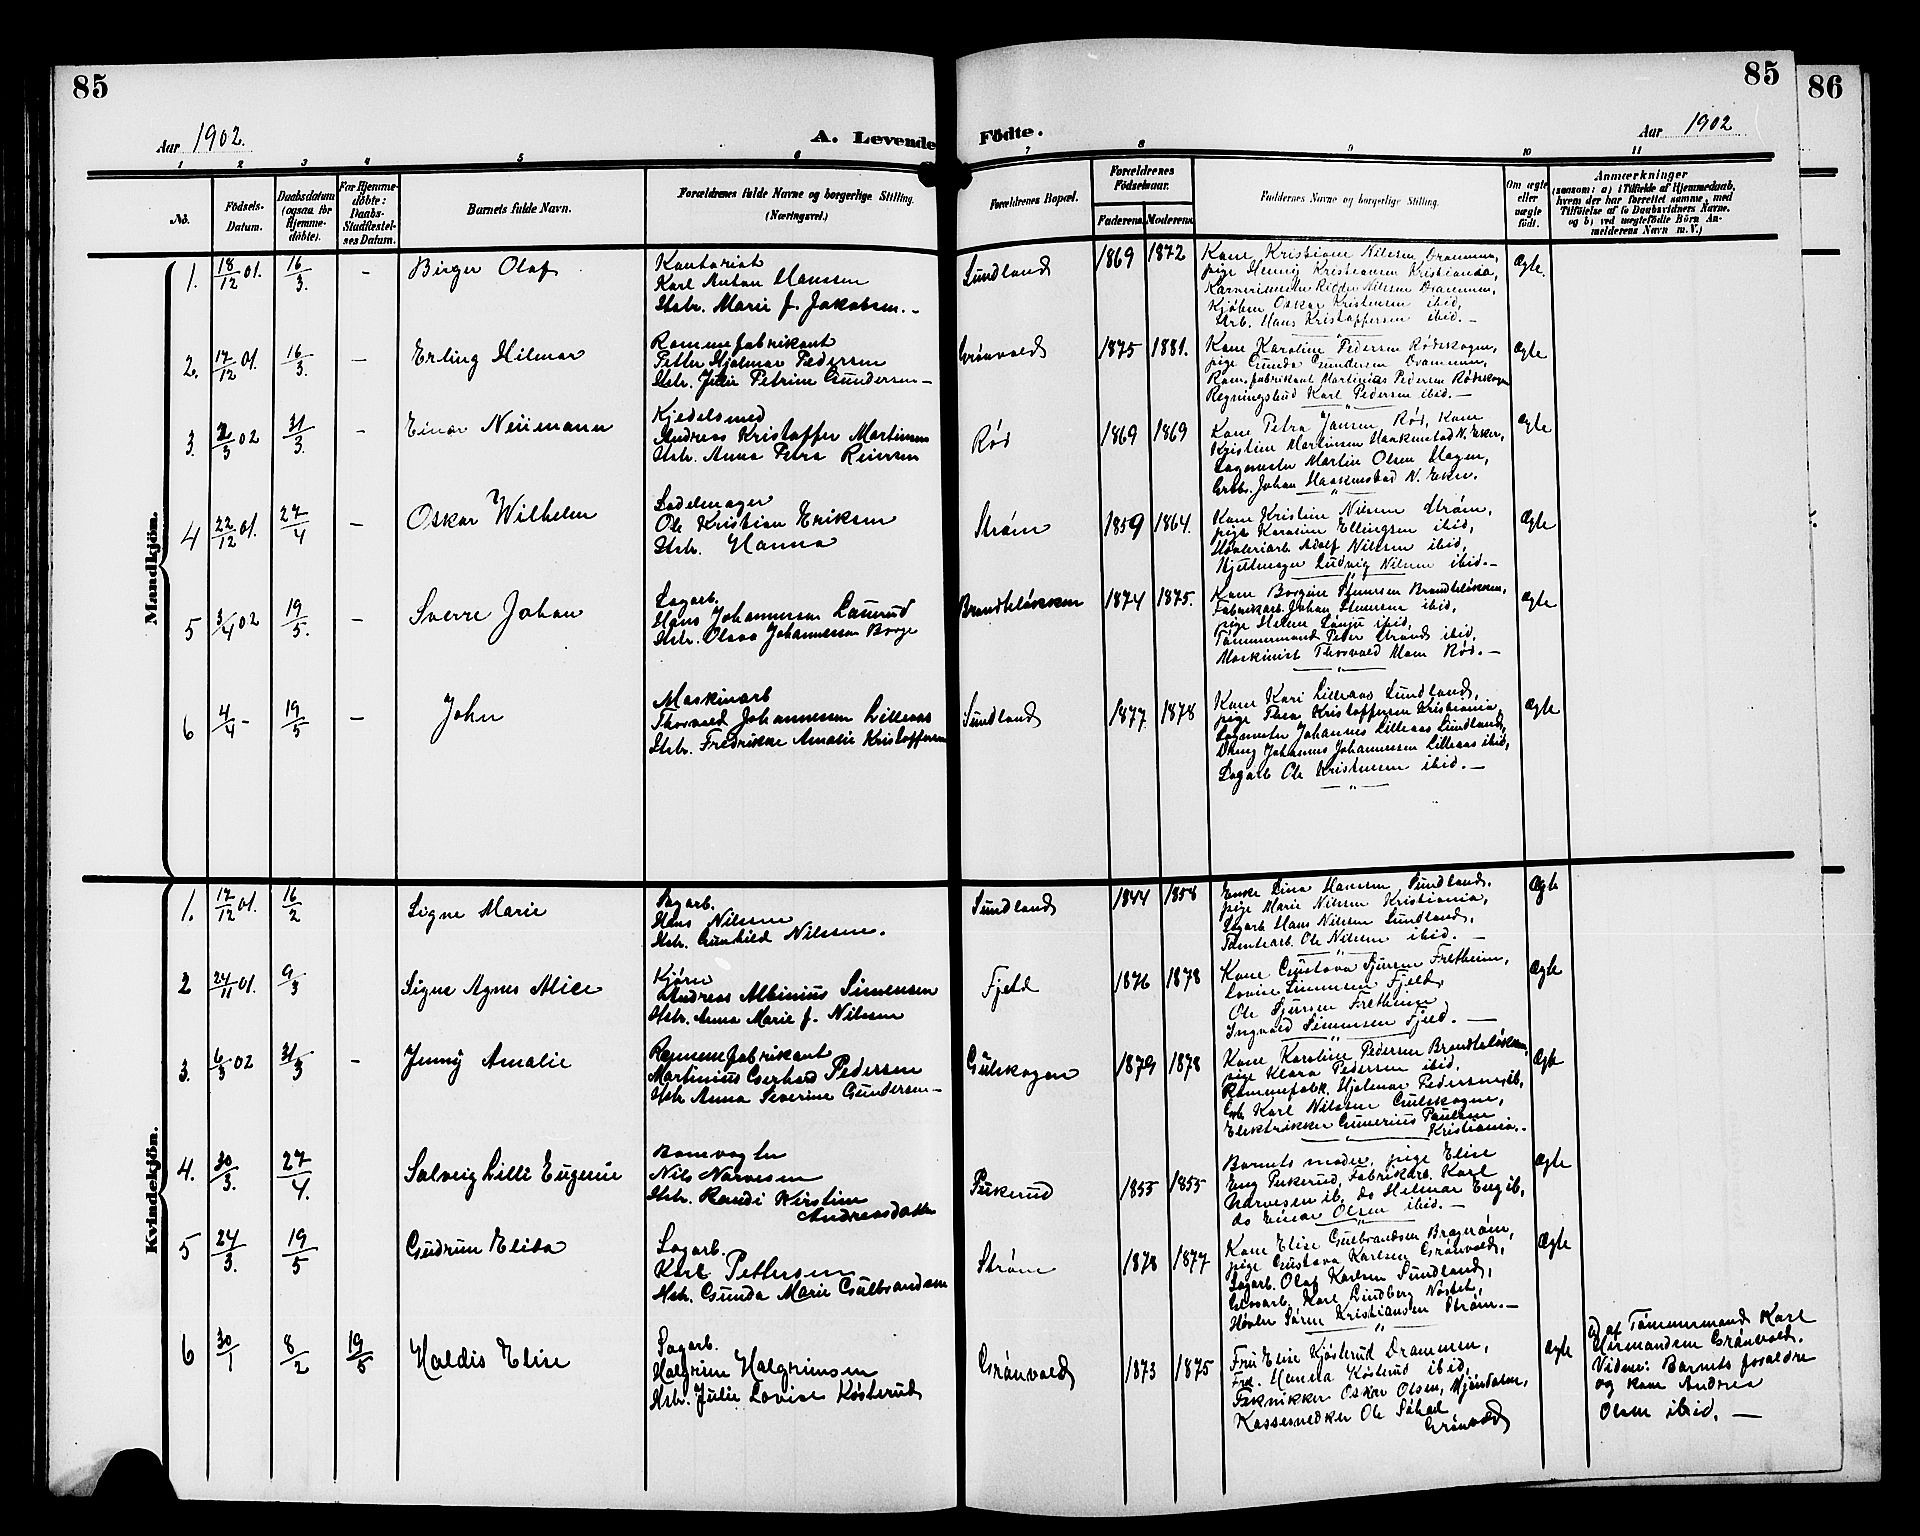 85
85
86
Aar 1902.
A. Levende Födte.
Aar 1902
1 2 3 4 5 6 7 8 9 10 11
No.
Födsels-
Datum.
Daabsdatum
(ogsaa for
Hjemme-
döbte).
For Hjemme-
döbte:
Daabs-
Stadfæstel-
ses Datum.
Barnets fulde Navn.
Forældrenes fulde Navne og borgerlige Stilling.
(Næringsvei.)
Forældrenes Bopæl.
Forældrenes
Födselsaar.
Faderens. Moderens.
Faddernes Navne og borgerlige Stilling.
Om ægte
eller
uægte
född.
Anmærkninger
(saasom: a) i Tilfælde af Hjemmedaab,
hvem der har forrettet samme, med
Tilföielse af to Daabsvidners Navne,
og b) ved uægtefödte Börn An-
melderens Navn m. V.)
Mandkjön.
1. 18/12 01. 16/3. - Birger Olaf
Kontorist
Karl Anton Hanssen
Hstr. Marie J. Jakobsen. -
Sundland 1869 1872
Kone Kristiane Nilsen Drammen,
pige Henny Kristiansen Kristiania,
Nilsen Drammen,
Kjøbm. Oskar Kristensen ibid,
Arb. Hans Kristoffersen ibid. -
Ægte.
2. 17/12 01. 16/3. - Erling Hilmar
Rammefabrikant
Petter Hjalmar Pedersen
Hstr. Julie Petrine Gundersen -
Grönvold 1875 1881.
Kone Karoline Pedersen Rödskogen,
pige Gunda Gundersen Drammen,
Ram.fabrikant Martinius Pedersen Rödskogen
Regningsbud Karl Pedersen ibid. -
Ægte
3. 2/3 02 31/3. - Einar Neumann
Kjedelsmed
Andreas Kristoffer Martinsen
Hstr. Anna Petra Reiersen
Rød 1869 1869
Kone Petra Jansen Rød, Kone
Kristine Martinsen Haakenstad N. Eker,
Sagmester Martin Olsen Hagen,
Johan Haakenstad N. Eker. -
Ægte
4 22/12 01. 27/4 - Oskar Wilhelm
Sadelmager
Ole Kristian Eriksen
Hstr. Hanna
Strøm 1859 1864.
Kone Kristine Nilsen Strøm,
pige Karoline Ellingsen ibid,
Høvleriarb. Adolf Nilsen ibid,
Hjulmager Ludvig Nilsen ibid. -
Ægte
5 3/4 02 19/5. - Sverre Johan
Sagarb.
Hans Johannesen Laurud
Hstr. Olava Johannessen Borge
Brandteløkken 1874 1875.
Kone Borgine Stenersen Brandteløkken,
Fabrikarb. Johan Stenersen ibid,
pige Helene ibid,
Tømmermand Peder Strand ibid,
Maskinist Thorvald Moen Rød. -
Ægte
6 4/4 - 19/5 - John
Maskinarb
Thorvald Johannesen Lilleaas
Hstr. Fredrikke Amalie Kristoffersen
Sundland 1877 1878
Kone Kari Lilleaas Sundland,
pige Thea Kristoffersen Kristiania,
Sagmester Johannes Lilleaas Sundland,
Johannes Johannessen Lilleaas ibid,
Sagarb Ole Kristensen ibid. -
Ægte
Kvindekjön.
1. 17/12 01. 16/2 Signe Marie
Sagarb.
Hans Nilssen
Hstr. Gunhild Nilssen.
Sundland 1844 1858
Enke Lina Hansen Sundland.
pige Marie Nilsen Kristiania,
Sagarb Hans Nilssen Sundland,
Tomtearb. Ole Nilsen ibid. -
Ægte
2 24/11 01. 9/3 Signe Agnes Alice
Kjører
Andreas Albinius Simensen
Hstr. Anna Marie J. Nilssen
Fjeld 1876 1878
Kone Gustava Sjursen Fretheim,
Lovise Simensen Fjeld,
Ole Sjursen Fretheim,
Ingvald Simensen Fjeld. -
Ægte
3. 6/3 02 31/3 - Jenny Amalie
Rammefabrikant
Martinius Gerhard Pedersen
Hstr Anna Severine Gundersen -
Gulskogen 1879 1878
Kone Karoline Pedersen Brandteløkken,
pige Klara Pedersen ibid,
Rammefabk. Hjalmar Pedersen ib,
Grb. Karl Nilssen Gulskogen,
Elektrikker Gunerius Paulsen
Kristiania. -
Ægte
4. 30/3. 27/4. Solveig Lilli Eugenie
Bomvogter
Nils Narvesen
Hstr. Randi Kirstine
Andreasdatter
Pukerud 1855 1855
Barnets moder, pige Elise
Eng Pukerud, Fabrikarb. Karl
Narvesen ib, do Hilmar Eng ib,
do Einar Olsen ibid. -
Ægte
5 24/3. 19/5 Gudrun Elida
Sagarb.
Karl Pettersen
Hstr. Gunda Marie Gulbrandsen
Strøm 1878 1877
Kone Elise Gulbrandsen Bragerøen,
pige Gustava Karlsen Grønvold,
Sagarb. Olaf Karlsen Sundland,
Glasarb. Karl Lindberg Nøstet,
Høvler Søren Kristiansen Strøm. -
Ægte
6 30/1 8/2 19/5 Haldis Elise
Sagarb.
Halgrim Halgrimsen
Hstr. Julie Lovise Kösterud
Grönvold 1873 1875
Fru Elise Kjösterud Drammen,
Frk. Hanna Kösterud ibid,
Teknikker Oskar Olsen, Mjöndalen,
Kassesnedker Ole
Grönvold
Ægte
a) af Tömmermand Karl
Hermandsen Grönvold.
Vidner: Barnets foraldre
og kone Andrea
Olsen ibid. -